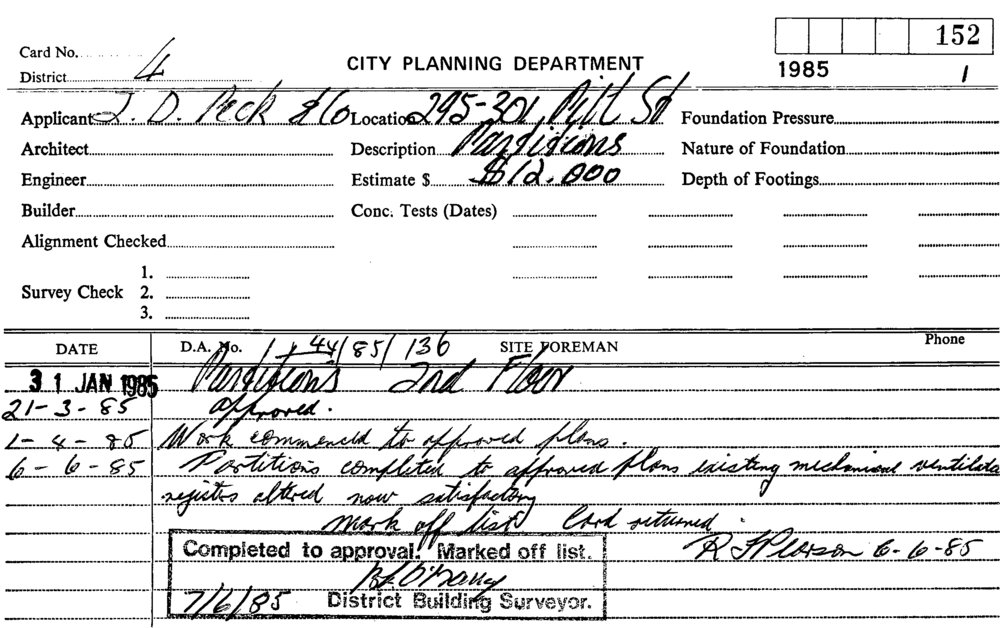 152
Card No.
CITY PLANNING DEPARTMENT
1985 1
District 4
Applicant J. D. Peck & Co Location 295-301 Pitt St Foundation Pressure
Architect Description Partitions Nature of Foundation
Engineer Estimate $ $12.000 Depth of Footings
Builder Conc. Tests (Dates)
Alignment Checked
1.
Survey Check 2.
3.
DATE D.A. No. 44/85/136 SITE FOREMAN Phone
31 JAN 1985 Partitions 2nd Floor
21-3-85 approved.
1-4-85 Work commenced to approved plans.
6-6-85 Partitions completed to approved plans existing mechanical ventilatn
registers altered now satisfactory
mark off list Card returned.
Completed to approval. Marked off list. 6-6-85
7/6/85 District Building Surveyor.